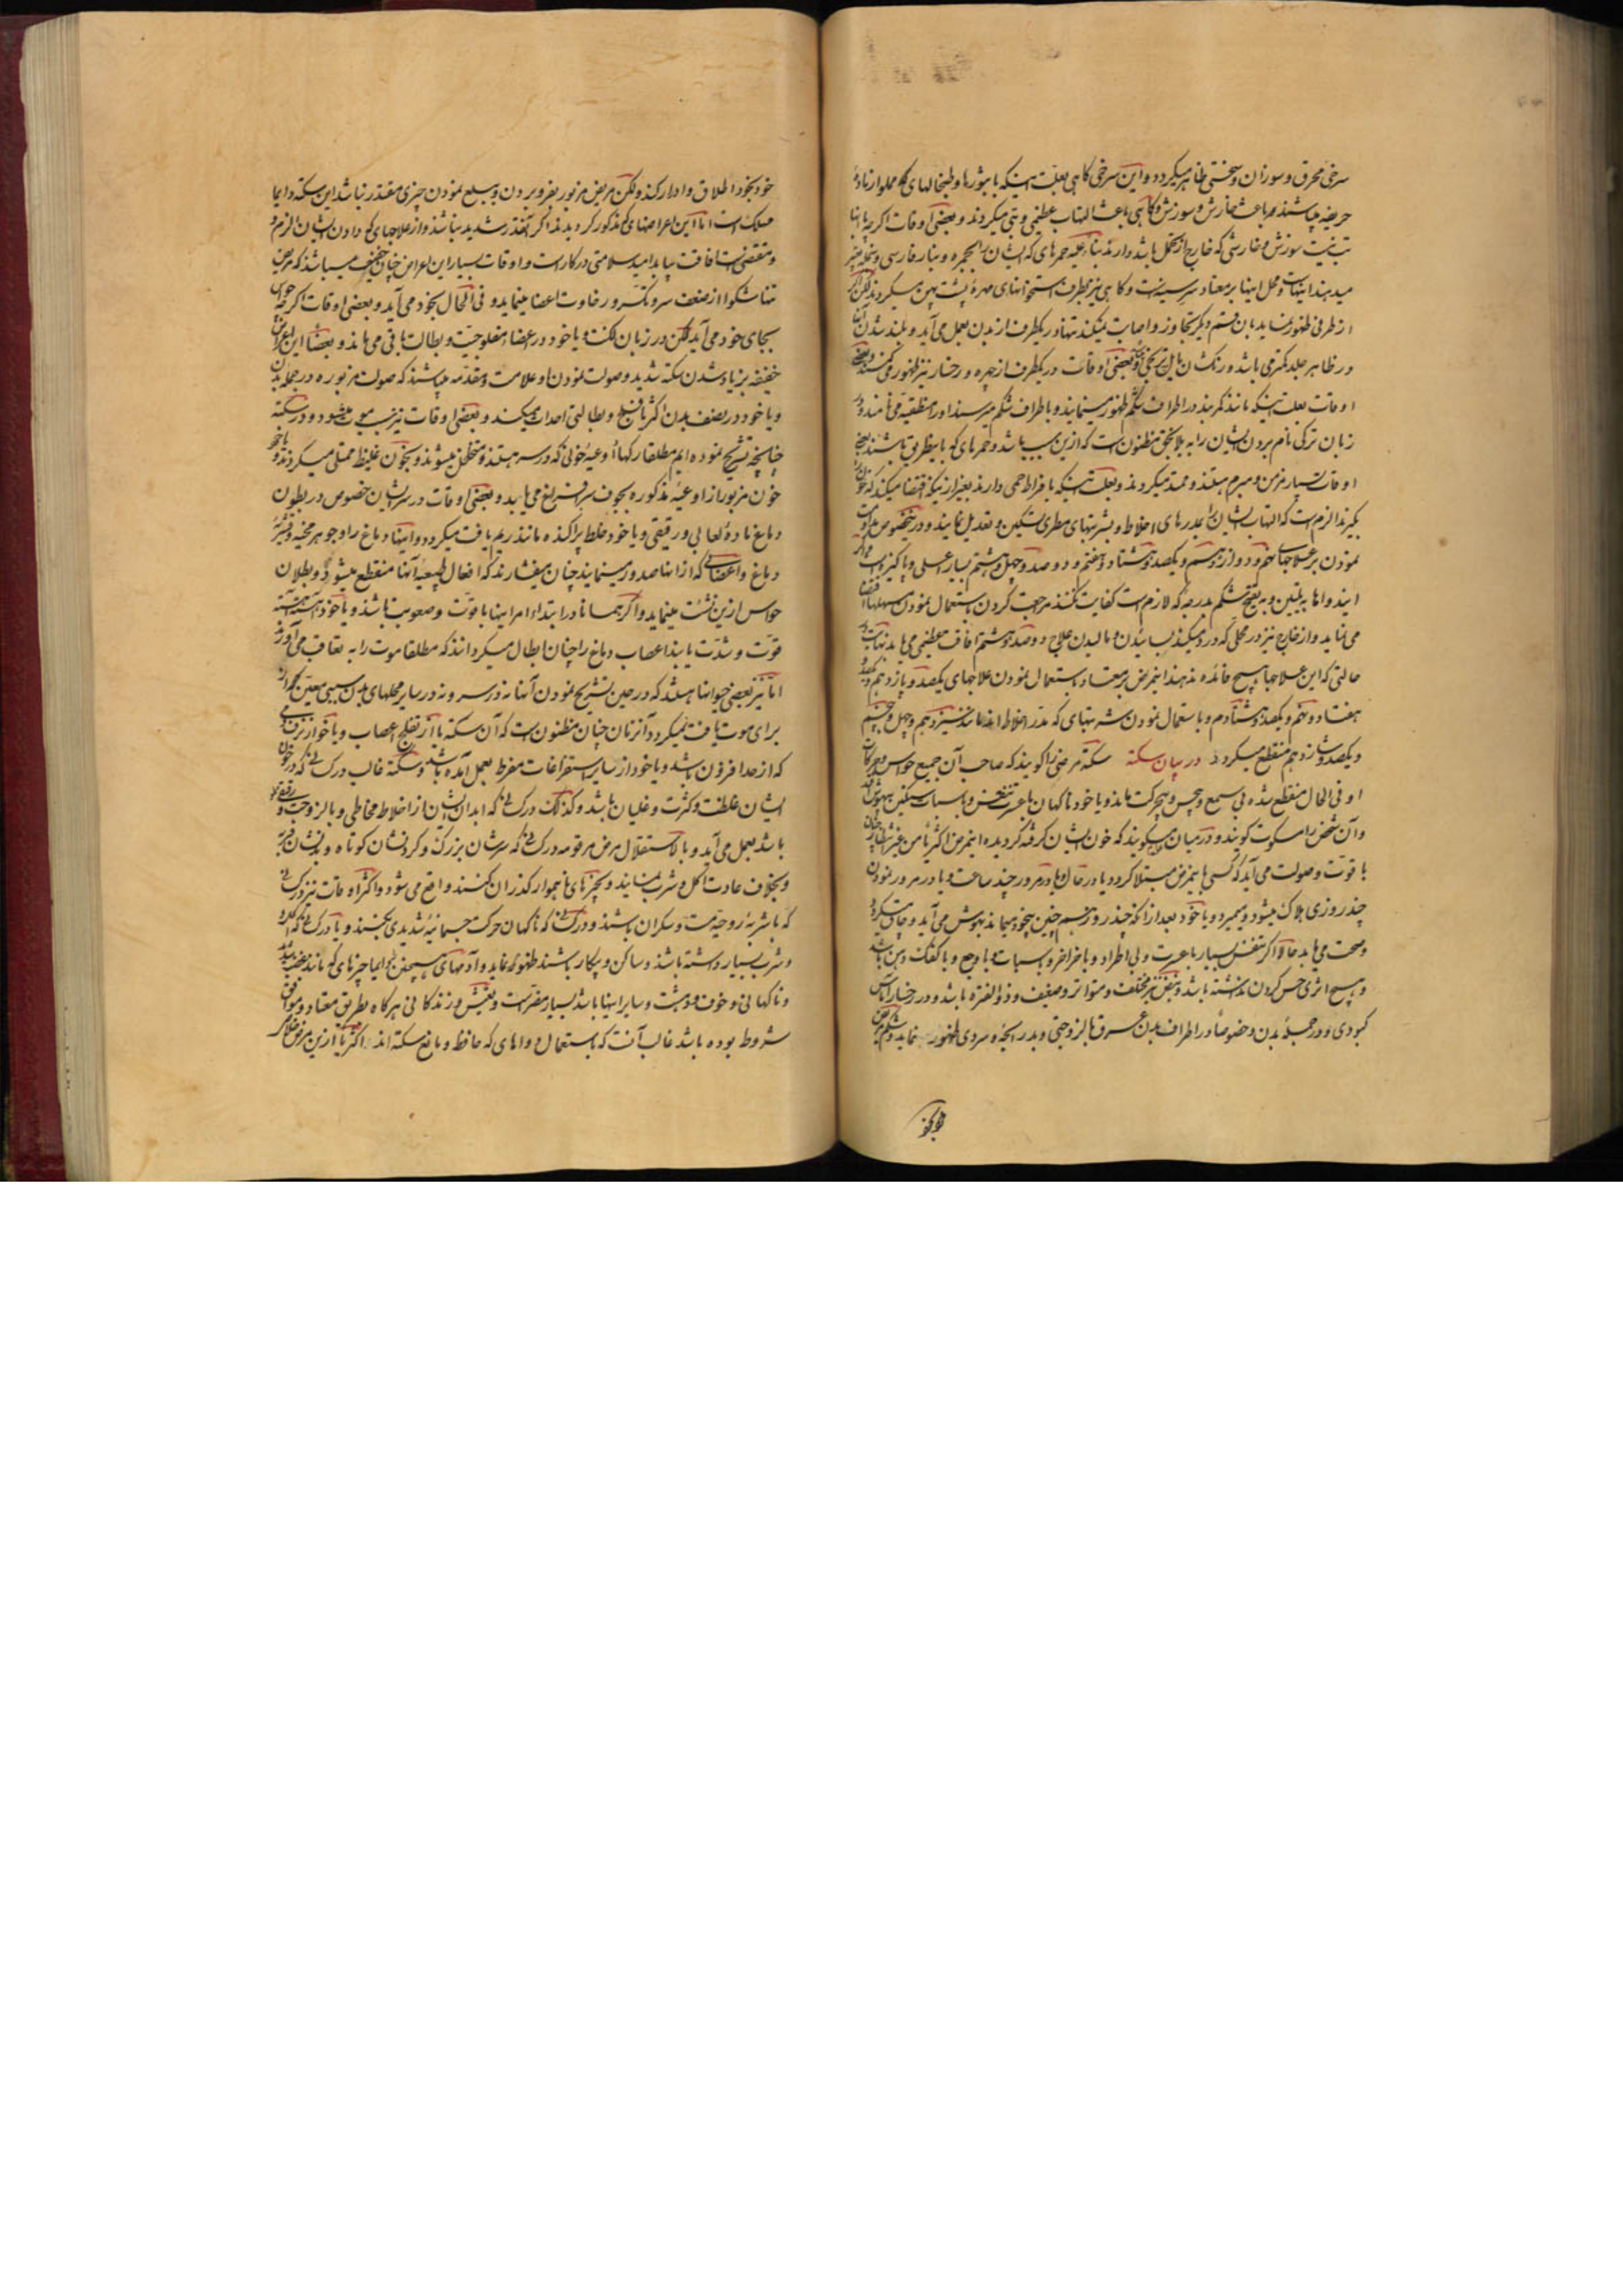 سرخی محرق و سوزان و سختی ظاهر میگردد و این سرخی گاهی بعلت اینکه با بثورها و طبخالهای که مملو از ماده
حریضه میباشند همراه باعث خارش و سوزش و گاهی باعث التهاب عظیمی و تبی میگردند و بعضی اوقات اگرچه
سوزش و خارشی که خارج از تحمل باشد دارند بناء علیه جمرهای که ایشان را جمره و نار فارسی و نمله
میدهند اینهاست و محل اینها بر معتاد سر سینه است و گاهی نیز بطرف استخوانهای مهره پشت پهن میگردند لکن
از طرفی ظهور نماید بان قسم دیگر تجاوز و اصابت نمیکند تنها در یکطرف از بدن بعمل می آید و بلند شدن
در ظاهر جلد کمتر می باشد و رنگشان مایل بسرخی و بعضی اوقات در یکطرف از چهره و رخسار نیز ظهور می کنند
اوقات بعلت اینکه مانند کمربند در اطراف شکم ظهور مینمایند و باطراف شکم میرسند او را منطقیه می نامند
زبان ترکی نام بردن ایشان را به یلانجق مظنون است که ازین سبب باشد و جمرهای که باینطریق باشند
اوقات بسیار مزمن و مبرم هستند و ممتد میگردند و بعلت اینکه بافراط حمی دارند بغیر از اینکه اقتضا میکند که خون
بگیرند الزم است که التهاب ایشان را بمدرهای اخلاط و بشربتهای مطری تسکین و تعدیل نمایند و در خصوص مداومت
نمودن بر علاجهای نهم و دوازدهم و یکصد و هشتاد و هفتم و دو صد و چهل و هشتم بسیار اعلی و پاکیزه است
ایند و اما به تلیین و به تفتیح شکم بدرجه که لازم است کفایت نکنند مرحمت کردن باستعمال نمودن مسهلها اقتضا
می نماید و از خارج نیز در محلی که درد میکند بسائیدن و مالیدن علاج دو صد و هشتم افاقت عظیمی می یابد
حالتی که این علاجها هیچ فائده ندهند اینمرض بر معتاد باستعمال نمودن علاجهای یکصد و پازدهم و یکصد و
هفتاد و نهم و یکصد و هشتادم و باستعمال نمودن شربتهای که مدر اخلاط اند مانند سیزدهم و چهل و پنجم
و یکصد و شانزدهم منقطع میگردد در بیان سکته سکته مرضی را گویند که صاحب آن جمیع حواس و حرکات
او فی الحال منقطع شده بی سمع و بیحس و بیحرکت ماند و یا خود ناگهان با عسرت تنفس و با سبات سنگین بیهوش
و آن شخص را مسکوت گویند و در میان میگویند که خون ایشان گرفته گردیده اینمرض اکثریا من غیر انتظار چنان
با قوت و صولت می آید که کسی با ینمرض مبتلا گردد یا در حال یا در مرور چند ساعت و یا در مرور نمودن
چند روزی هلاک میشود و میمیرد و یا خود بعد از آنکه چند روز هم چنین بیخود میماند بهوش می آید و چاق میگردد
و صحت می یابد حالا اگر تنفس بسیار با عسرت و بی اطراد و با خراخر و با سبات و با وجع و با کفک دهن باشد
و هیچ اثری حس کردن نداشته باشد و نبض نیز مختلف و متواتر و ضعیف و ذو الفتره باشد و در رخسار آماس
کبودی و در جمله بدن و خصوصا در اطراف بدن عرق با لزوجتی و بد رائحه و سردی ظهور نماید و شکم مریض
خود بخود
خود بخود اطلاق و ادرار کند ولکن مریض مزبور بفرو بردن و بسیع نمودن چیزی مقتدر نباشد این سکته دایما
مهلک است اما این اعراضهای که مذکور گردیدند اگر آنقدر شدید نباشند و از علاجهای که دادن ایشان الزم و
و مقتضی است افاقت بیابد امید سلامتی در کار است و اوقات بسیار این اعراض چنان خفیف میباشد که مریض
تنها شکوا از ضعف سر و تکسر و رخاوت اعضا مینماید و فی الحال بخود می آید و بعضی اوقات اگرچه حواس
بجای خود می آید لکن در زبان لکنت و یا خود در اعضا مفلوجیت و بطالت باقی می ماند و بعضا این اعراض
خفیفه بزیاد شدن سکته شدید و صولت نمودن او علامت و مقدمه میباشند که صولت مزبوره در جمله بدن
و یا خود در نصف بدن اکثریا فلج و بطالتی احداث میکند و بعضی اوقات نیز سبب موت میشود و در سکته
چنانچه تشریح نموده ایم مطلقا رگها و اوعیه خونی که در سر هستند متخلخل میشوند و بخون غلیظ ممتلی میگردند و
خون مزبور از اوعیه مذکوره بجوف سر استفراغ می یابد و بعضی اوقات در سر ایشان خصوص در بطون
دماغ ماده لعابی و رقیقی و یا خود خلط پراکنده مانند ریم یافت میگردد و اینها دماغ را و جوهر مخیه و قشریه
دماغ و اعضائی که از انها صدور مینمایند چنان میفشارند که افعال طبیعیه آنها منقطع میشود و بطلان
حواس ازین نشئت مینماید و اگر همانا در ابتداء امر اینها با قوت و صعوبت باشند و یا خود آهسته آهسته
قوت و شدت یابند اعصاب دماغ را چنان ابطال میگردانند که مطلقا موت را به تعاقب می آورند
اما نیز بعضی حیوانها هستند که در حین تشریح نمودن آنها نه در سر و نه در سایر محلهای بدن سببی معین
برای موت یافت نمیگردد آنزمان چنان مظنون است که آن سکته یا از تفلج اعصاب و یا خود از نزفی
که از حد افزون باشد و یا خود از سایر استفراغات مفرط بعمل آمده باشد و سکته غالب در کسانی که در خون
ایشان غلظت و کثرت و غلیان باشد و کذلک در کسانی که ابدال ایشان از اخلاط مخاطی و با لزوجت واقع
باشد بعمل می آید و بالاستقلال مرض مرقومه در کسانی که سرشان بزرگ و گردنشان کوتاه و بدنشان فربه
و بخلاف عادت اکل و شرب نمایند و بچیزهای ناهموار گذران کنند واقع می شود و اکثر اوقات نیز در کسانی
که با شربه روحیه مست و سکران باشند و در کسانی که ناگهان حرکت جسمانیه شدیدی بکنند و یا در کسانی که اکل
و شرب بسیار داشته باشند و ساکن و بیکار باشند ظهور نماید و آدمهای همچنین را دایما چیزهای که مانند غضب شدید
و ناگهانی و خوف و دهشت و سایر اینها باشد بسیار مضر است و تعیش و زندگانی هرگاه بطریق معتاد و موافق
شروط بوده باشد غالب آنست که باستعمال دواهای که حافظ و مانع سکته اند اکثریا ازین مرض خلاص